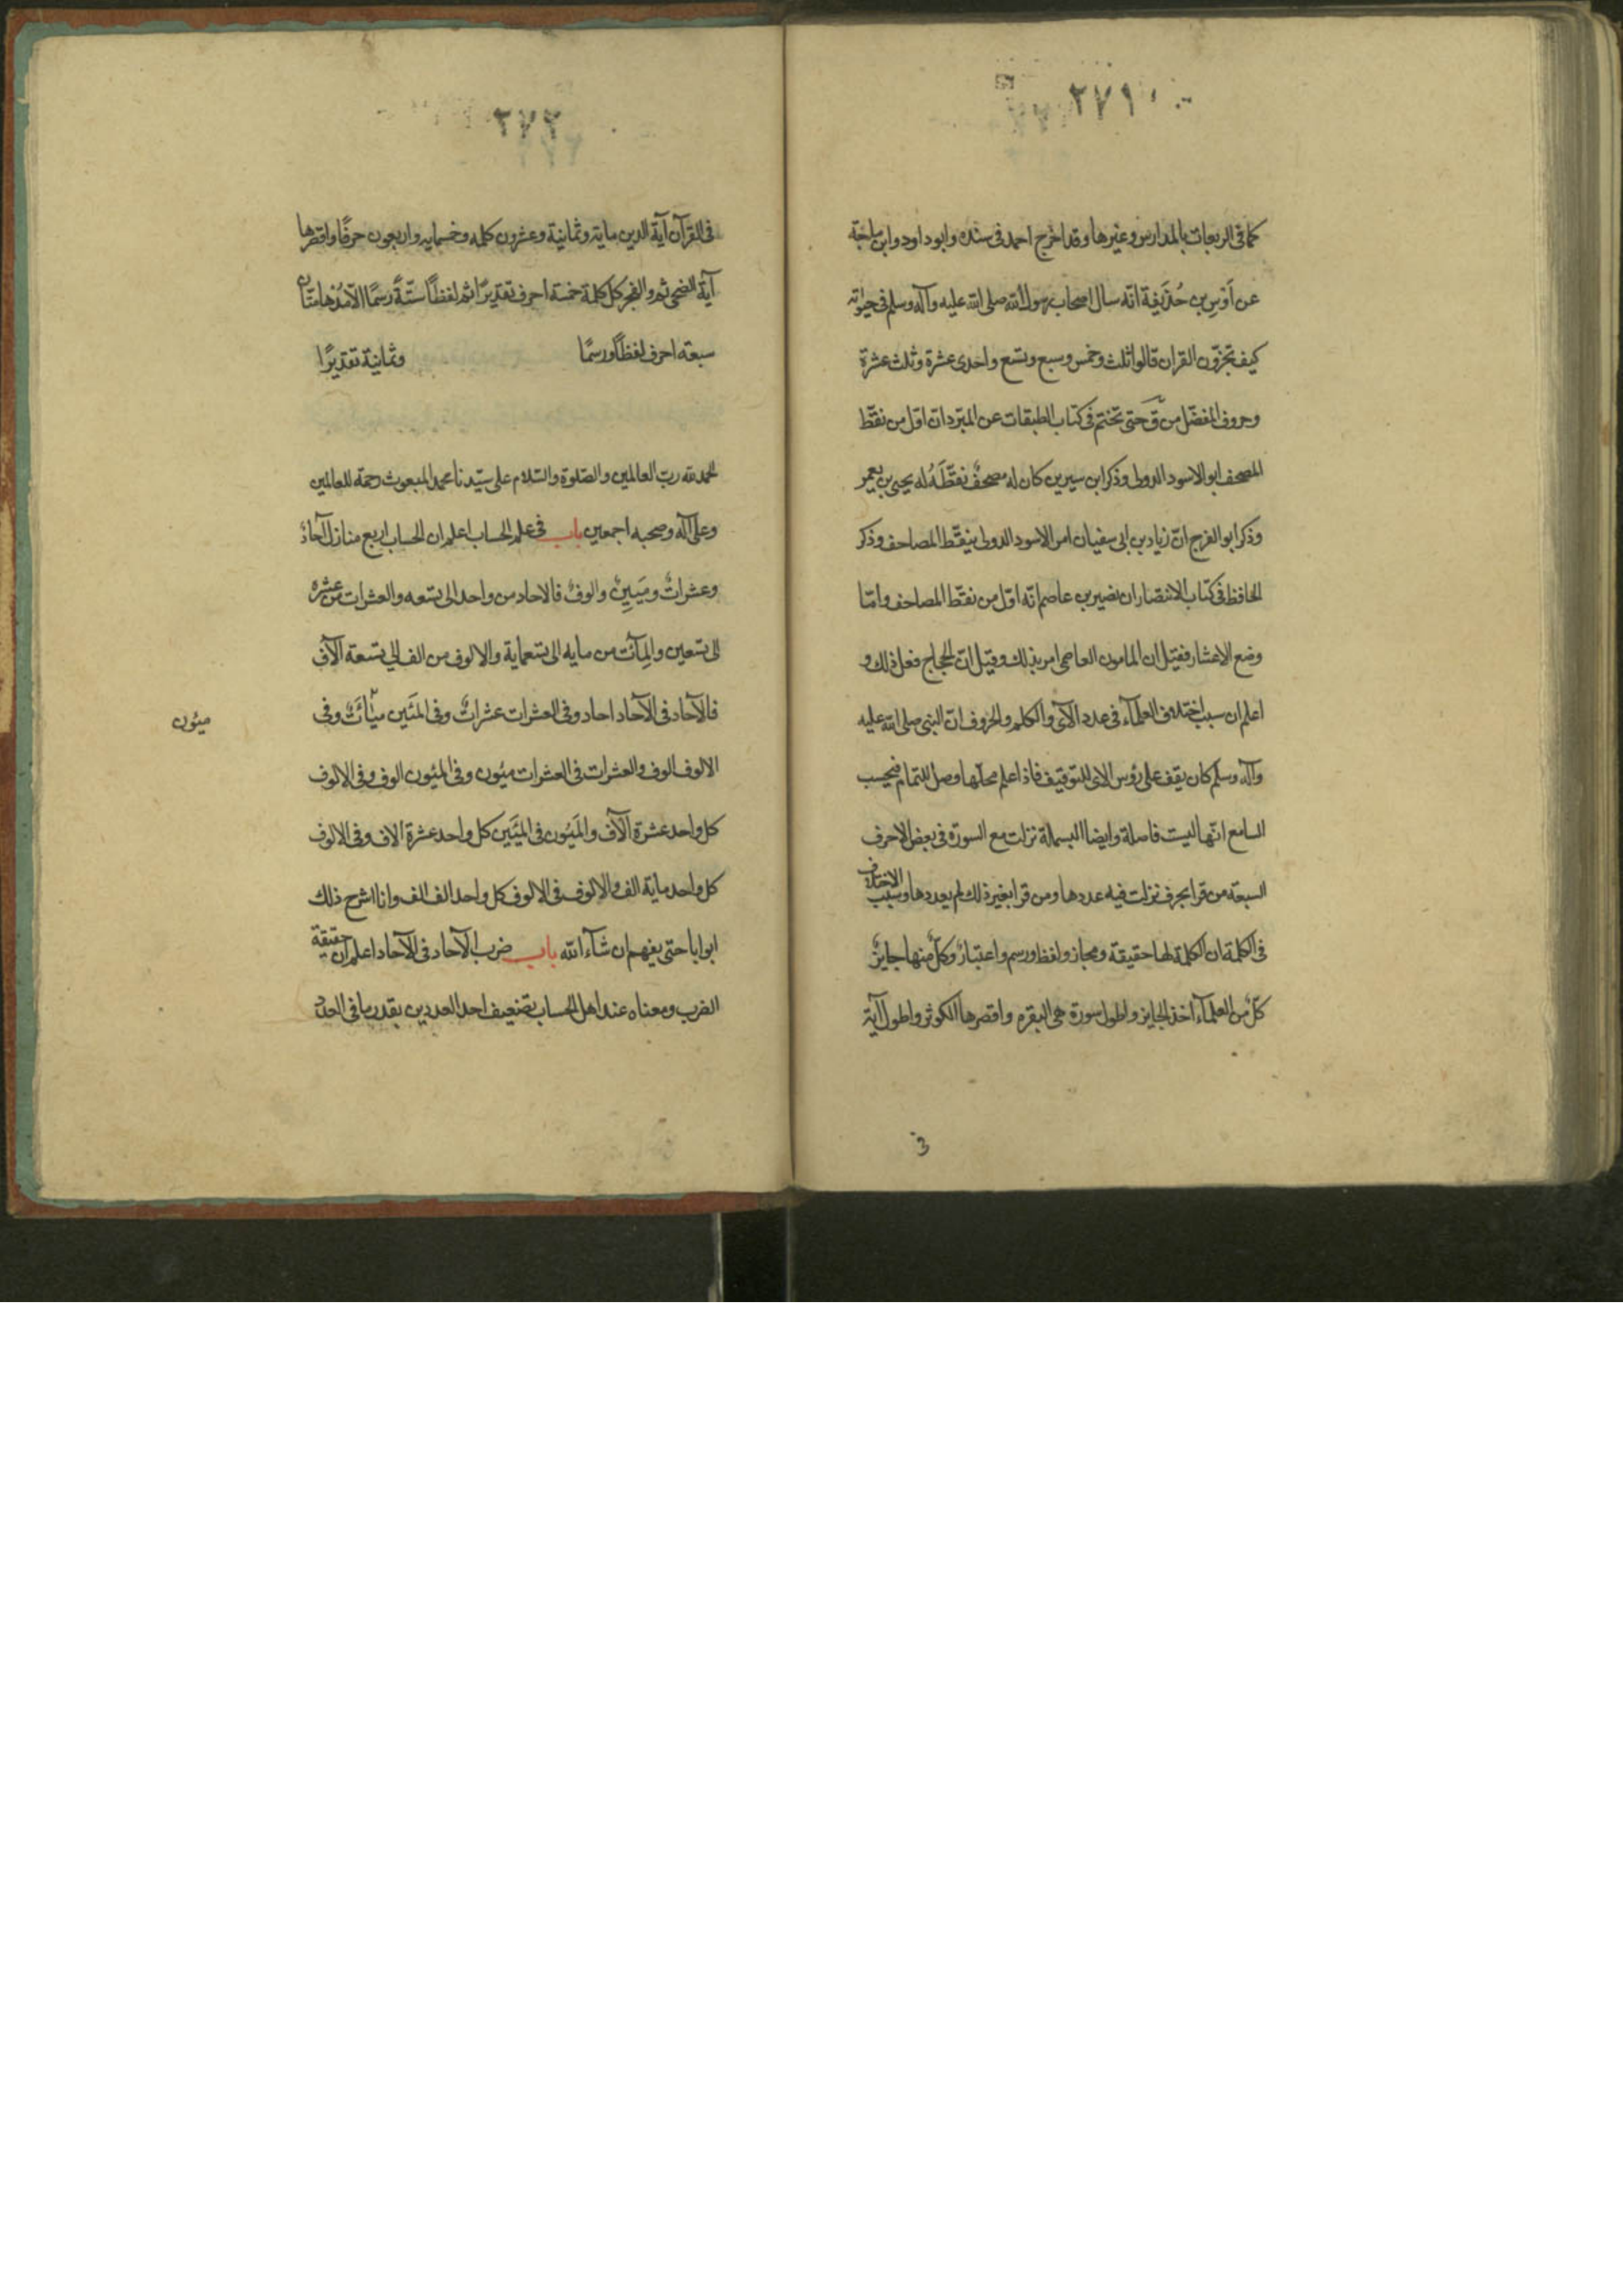 ٢٧١
كما فى الربعات بالمدارس وغيرها وقد اخرج احمد فى سنده وابوداود وابن ماجة
عن اَوْسِ بن حُذَيفة انّه سال اصحاب رسول الله صلى الله عليه وآله وسلم فى حيوٰته
كيف تجزّون القران قالوا ثلث وخمس وسبع وتسع واحدى عشرة وثلث عشرة
وحروف المفضّل من قٓ حتى تختم فى كتاب الطبقات عن المبّرد ان اوّل من نقّط
المصحف ابو الاسود الدولى وذكر ابن سيرين كان له مصحفٌ نقّطَهُ له يحيى بن يعمر
وذكر ابو الفرج انّ زياد بن ابى سفيان امر الاسود الدولى بنيقّط المصاحف وذكر
الحافظ فى كتاب الانتصار ان نضير بن عاصم انّه اوّل من نقّط المصاحف وامّا
وضع الاعشار فقيل ان المامون العاصى امر بذلك وقيل انّ الحجاج فعل ذلك و
اعلم ان سبب اختلاف العلمآء فى عدد الآى والكلم والحروف انّ النبى صلى الله عليه
وآله وسلم كان يقف على رؤس الاى للتوقيف فاذا علم محلّها وصل للتمام فيحسب
السامع انّها ليست فاصلة وايضا البسملة نزلت مع السورة فى بعض الاحرف
السبعة من قرا بحرف نزلت فيه عددها ومن قرا بغير ذلك لم يعددها وسبب الاختلاف
فى الكلمة ان الكلمة لها حقيقة ومجاز ولفظ ورسم واعتبارٌ وكلّ منها جايزٌ
كلّ من العلمآء اخذ الجايز واطول سورة هى البقره واقصرها الكوثر واطول آية
٢٧٢
فى القرآن آية الدين ماية وثمانية وعشرون كلمه وخسمايه واربعون حرفًا واقصرها
آية الضحى ثم والفجر كل كلمة خمسة احرف تقديرًا ثم لفظًا ستّةً رسمًا الّا مُدْهامّتان
سبعه احرف لفظًا ورسمًا وثمانية تقديرًا
الحمد لله رب العالمين والصّلوة والسّلام على سيّدنا محمد المبعوث رحمة للعالمين
وعلى آله وصحبه اجمعين باب فى علم الحساب اعلم ان الحساب اربع منازل آحادٌ
وعشراتٌ ومَيَينٌ والوفٌ فالاحاد من واحد الى تسعه والعشرات من عشره
الى تسعين والمِآئت من مايه الى تسعماية والالوف من الف الى تسعة الآف
فالآحاد فى الآحاد احاد وفى العشرات عشراتٌ وفى المئين ميٰاَتٌ وفى
ميئون
الالوف الوف والعشرات فى العشرات مئون وفى المئون الوف وفى الالوف
كل واحد عشرة الآف والمَيُون فى المئَين كل واحد عشرة الاف وفى الالوف
كل واحد ماية الف والالوف فى الالوف كل واحد الف الف وانا اشرح ذلك
ابوابا حتى يفهم ان شآء الله باب ضرب الآحاد فى الآحاد اعلم ان حقيقة
الضرب ومعناه عند اهل الحساب تضعيف احد العددين بقدر ما فى العدد